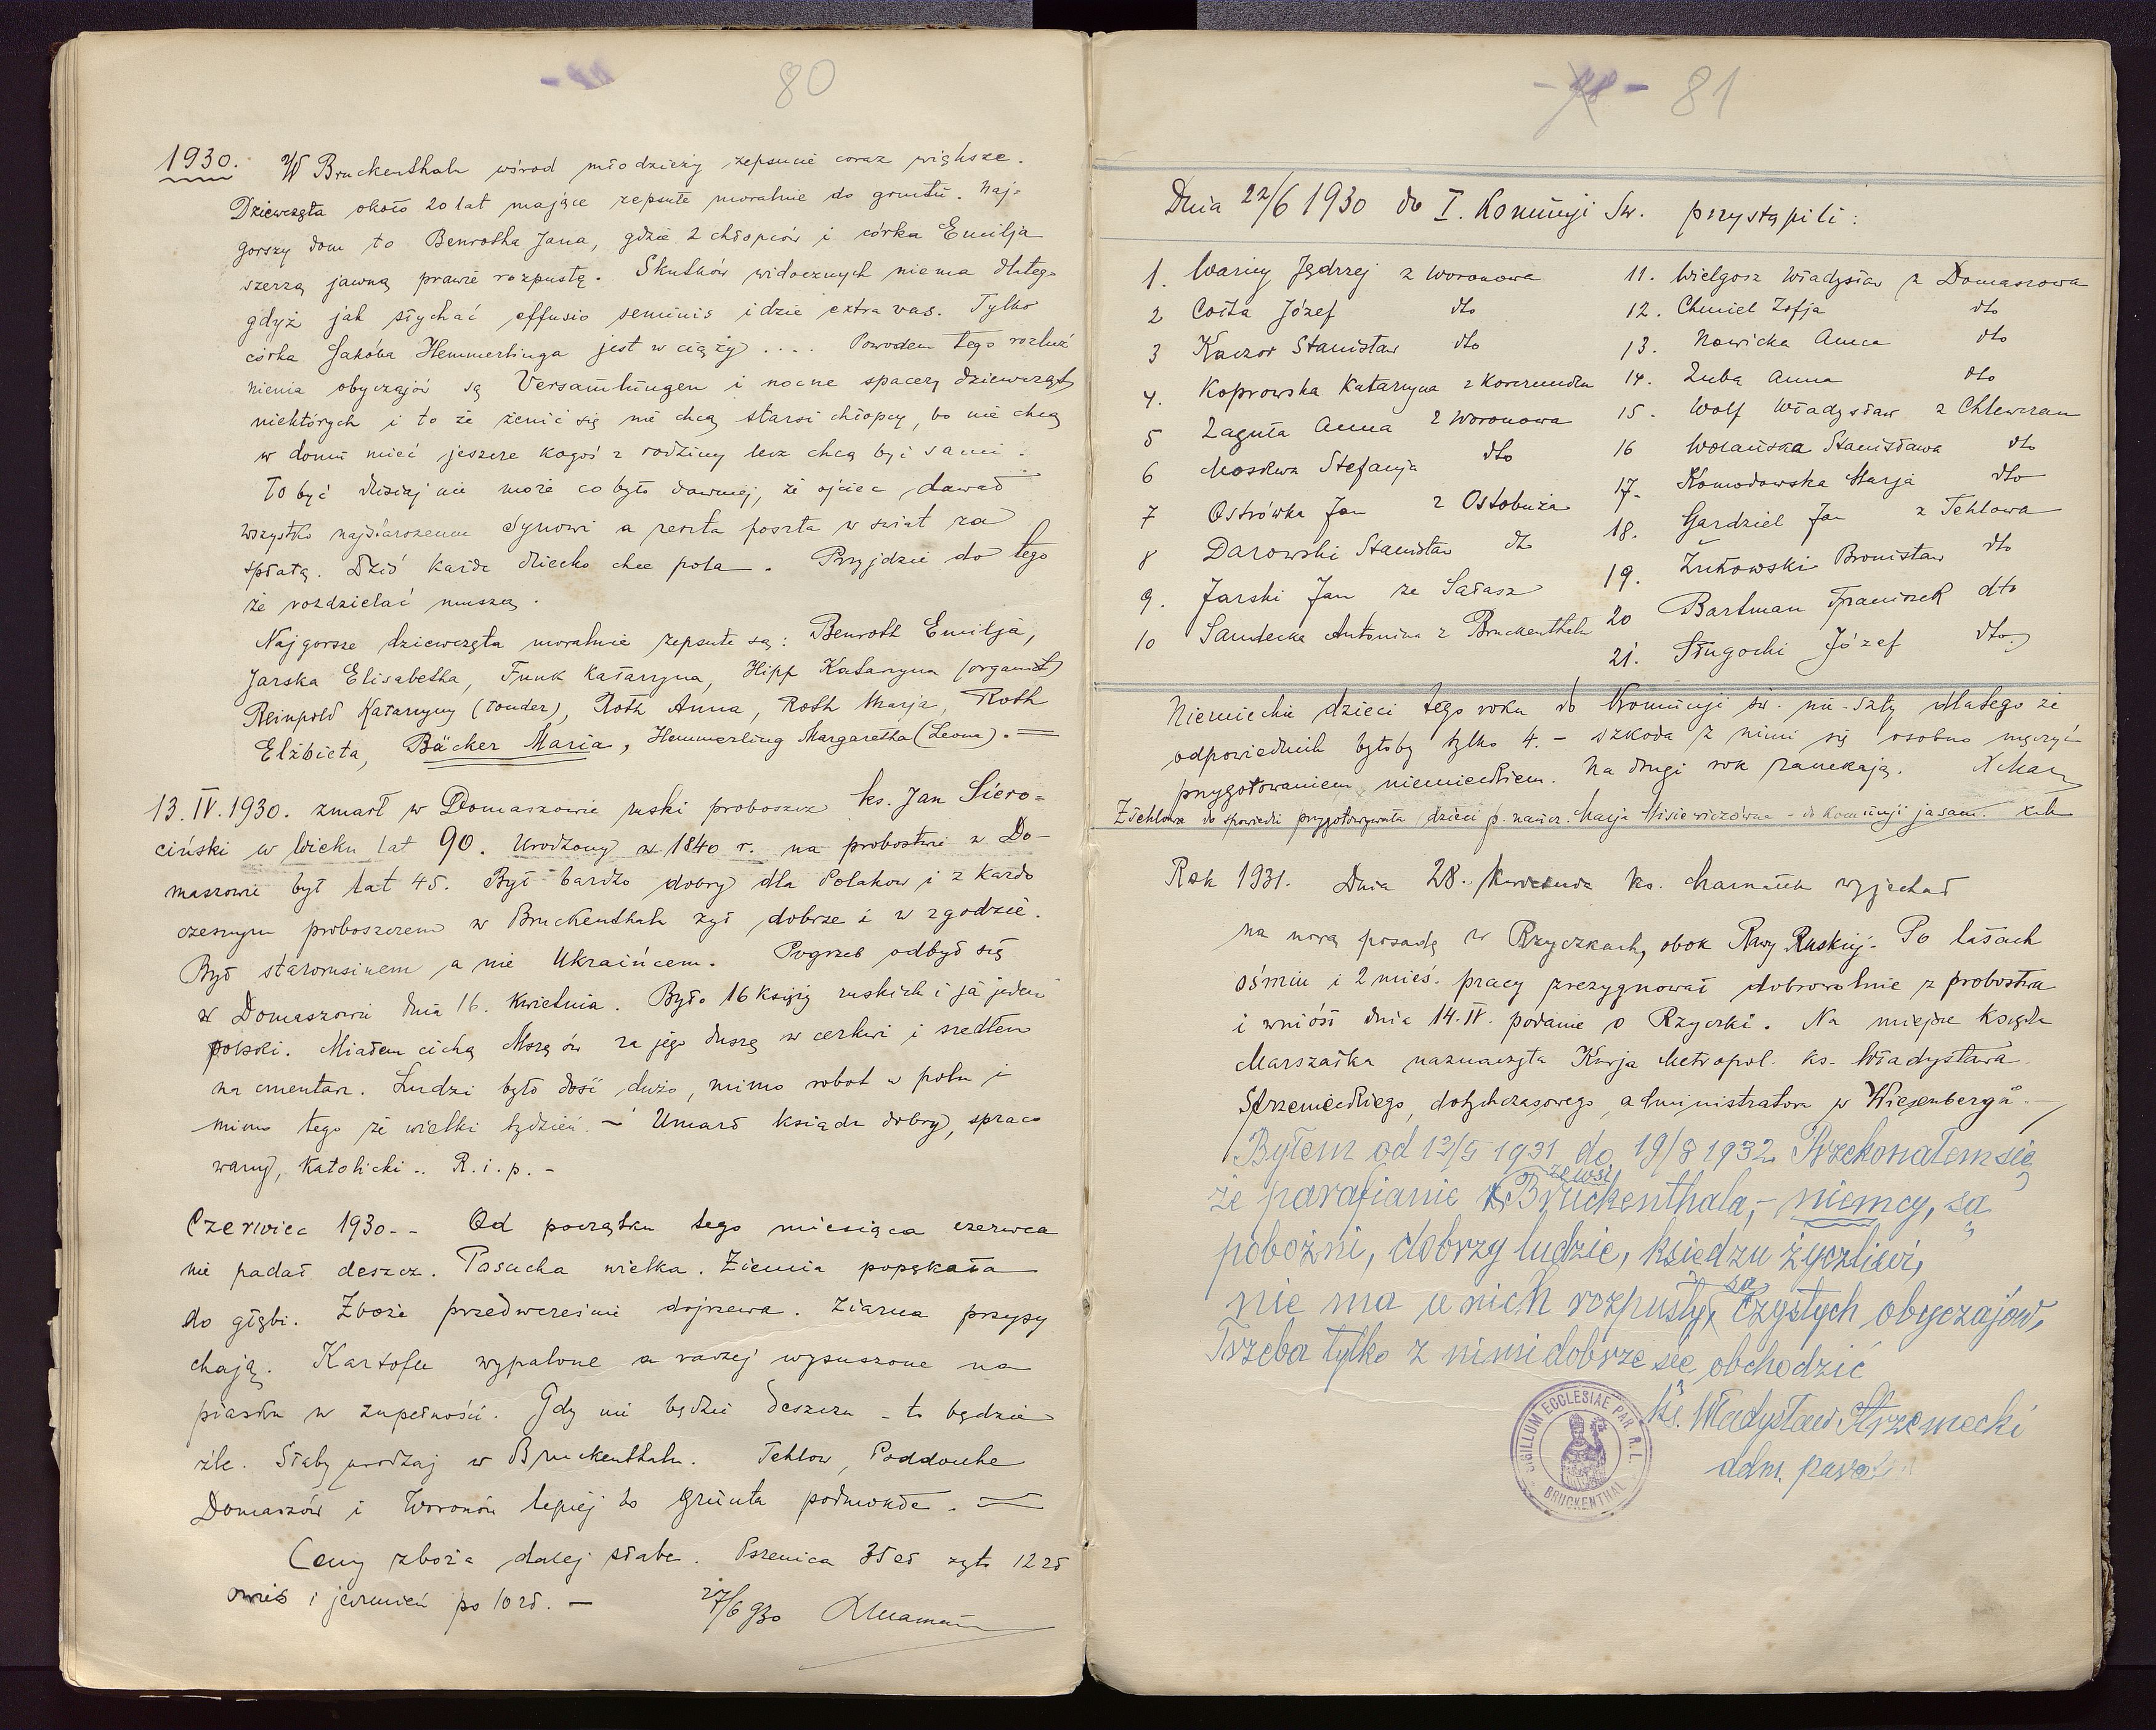 80
1930. W Bruckenthalu wśrod młodzieży zepsucie coraz większe.
Dziewczęta około 20 lat mające zepsute moralnie do gruntu. Naj-
gorszy dom to Benrotha Jana, gdzie 2 chłopców i córka Emilja
szerzą jawną prawie rozpustę. Skutków widocznych niema dlatego
gdyż jak słychać effusio seminis idzie extra vas. Tylko
córka Jakóba Hemmerlinga jest w ciąży .... Powodem tego rozluź
nienia obyczajów są Versamlungen i nocne spacery dziewcząt
niektórych i to że żenić się nie chcą starsi chłopcy, bo nie chcą
w domu mieć jeszcze kogoś z rodziny lecz chcą być sami.
To być dzisiaj nie może co było dawniej, że ojciec dawał
wszystko najstarszemu synowi a reszta poszła w świat za
spłatą. Dziś każde dziecko chce pola. Przyjdzie do tego
że rozdzielać muszą.
Najgorsze dziewczęta moralnie zepsute są: Benroth Emilja,
Jarska Elisabetha, Funk Katarzyna, Hipp Katarzyna (organist)
Reinpold Katarzyny (), Roth Anna, Roth Marja, Roth
Elżbieta, Bäcker Maria, Hemmerling Margaretha (Leona). =
13. IV. 1930. zmarł w Domaszowie ruski proboszcz ks. Jan Siero=
ciński w wieku lat 90. Urodzony w 1840 r. na probostwie w Do-
maszowie był lat 45. Był bardzo dobry dla Polakow i z każdo
czesnym proboszczem w Bruckenthalu żył dobrze i w zgodzie.
Był starorusinem a nie Ukraińcem. Pogrzeb odbył się
w Domaszowie dnia 16. kwietnia. Było 16 księży ruskich i ja jeden
polski. Miałem cichą Mszę św za jego duszę w cerkwi i szedłem
na cmentarz. Ludzi było dość dużo, mimo robot w polu i
mimo tego że wielki tydzień. - Umarł ksiądz dobry, spraco
wany, katolicki.. R.i.p. -
Czerwiec 1930. - Od początku tego miesiąca czerwca
nie padał deszcz. Posucha wielka. Ziemia popękała
do głębi. Zboże przedwcześnie dojrzewa. Ziarna przypy
chają. Kartofle wypalone a raczej wysuszone na
piasku w zupełności. Gdy nie będzie deszczu - to będzie
źle. Słaby urodzaj w Bruckenthalu. Tehlow, Poddouhe
Domaszów i Woronów lepiej bo grunta podmokłe. =
Ceny zboża dalej słabe. Pszenica 35 zł żyto 12 zł
owies i jęczmień po 10 zł. - 27/6 930
- 78 - 81
Dnia 22/6 1930 do I. Komunji Św. przystąpili:
1. Jędrzej z Woronowa
2 Józef dto
3 Kaczor Stanisław dto
4. Koprowska Katarzyna z
5 Zaguła Anna z Woronowa
6 Moskwa Stefanja dto
7 Ostrówka Jan z Ostobuża
8 Darowski Stanisław dto
9. Jarski Jan ze Sałasz
10 Sandecka Antonina z Bruckenthalu
11. Wielgosz Władysław z Domaszowa
12. Chmiel Zofja dto
13. Nowicka Anna dto
14. Zuba Anna dto
15. Wolf Władysław z Chlewczan
16 Wolańska Stanisława dto
17. Komodowska Marja dto
18. Gardziel Jan z Tehlowa
19. Żukowski Bronisław dto
20 Bartman Franiszek dto
21. Długocki Józef dto
Niemieckie dzieci tego roku do Komunji św. nie szły dlatego że
odpowiednich byłoby tylko 4. - szkoda z nimi się osobno męczyć
przygotowaniem niemieckiem. Na drugi rok zaczekają.
Z Tehlowa do spowiedzi przygotowywała dzieci p. naucz. Marja Misiewiczówna - do Komunji ja sam.
Rok 1931. Dnia 28. kwietnia ks. Marszałek wyjechał
na nową posadę w Rzyczkach, obok Rawy Ruskiej. Po latach
ośmiu i 2 mieś. pracy zrezygnował dobrowolnie z probostwa
i wniósł dnia 14. IV. podanie o Rzyczki. Na miejsce Księdza
Marszałka naznaczyła Kurja Metropol. ks. Władysława
Strzemeckiego, dotychczasowego administratora w Wiesenbergu. -
Byłem od 12/5 1931 do 19/8 1932. Przekonałem się
że parafianie ze wsi Bruckenthala, - niemcy, są
pobożni, dobrzy ludzie, księdzu życzliwi,
nie ma u nich rozpusty, są czystych obyczajów,
Trzeba tylko z nimi dobrze się obchodzić
Ks. Władysław Strzemecki
adm. paraf
SIGILLUM ECCLESIAE PAR. R. L.
BRUCKENTHAL